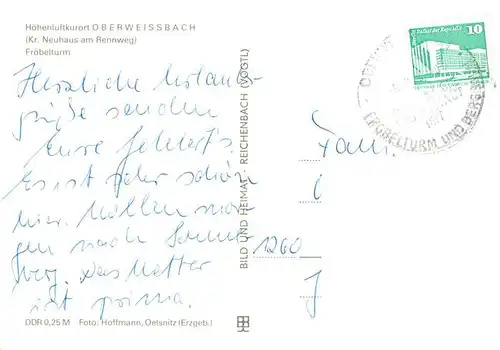 Höhenluftkurort OBERWEISSBACH
(Kr. Neuhaus am Rennweg)
Fröbelturm
Herzliche Urlaubs-
grüße senden
Eure
Es ist sehr schön
hier. Wollen mor-
gen nach Sonne-
berg. Das Wetter
ist prima.
DDR 0,25 M Foto: Hoffmann, Oelsnitz (Erzgeb.)
BILD UND HEIMAT REICHENBACH (VOGTL)
Palast der Republik
10
FRÖBELTURM UND BERG
Fam.
1260